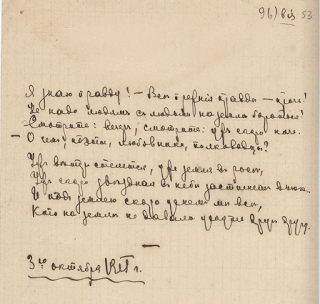 96) bis 53
Я знаю правду! – Всѣ прежнія правды – прочь!
Не надо людямъ съ людьми на землѣ бороться!
Смотрите: вечеръ, смотрите: ужъ скоро ночь.
– О чемъ, поэты, любовники, полководцы?
Ужъ вѣтеръ стелется, уже земля въ росѣ,
Ужъ скоро звѣздная въ небѣ застынетъ вьюга,
И подъ землею скоро уснемъ мы всѣ,
Кто на землѣ не давали уснуть другъ другу.
3го октября 1915 г.